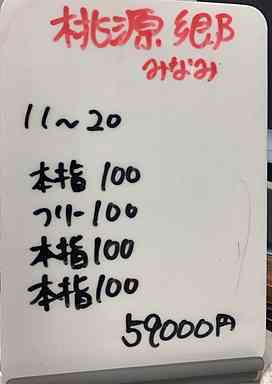 桃源郷
みなみ
11〜20
本指 100
フリー 100
本指 100
本指 100
59000円